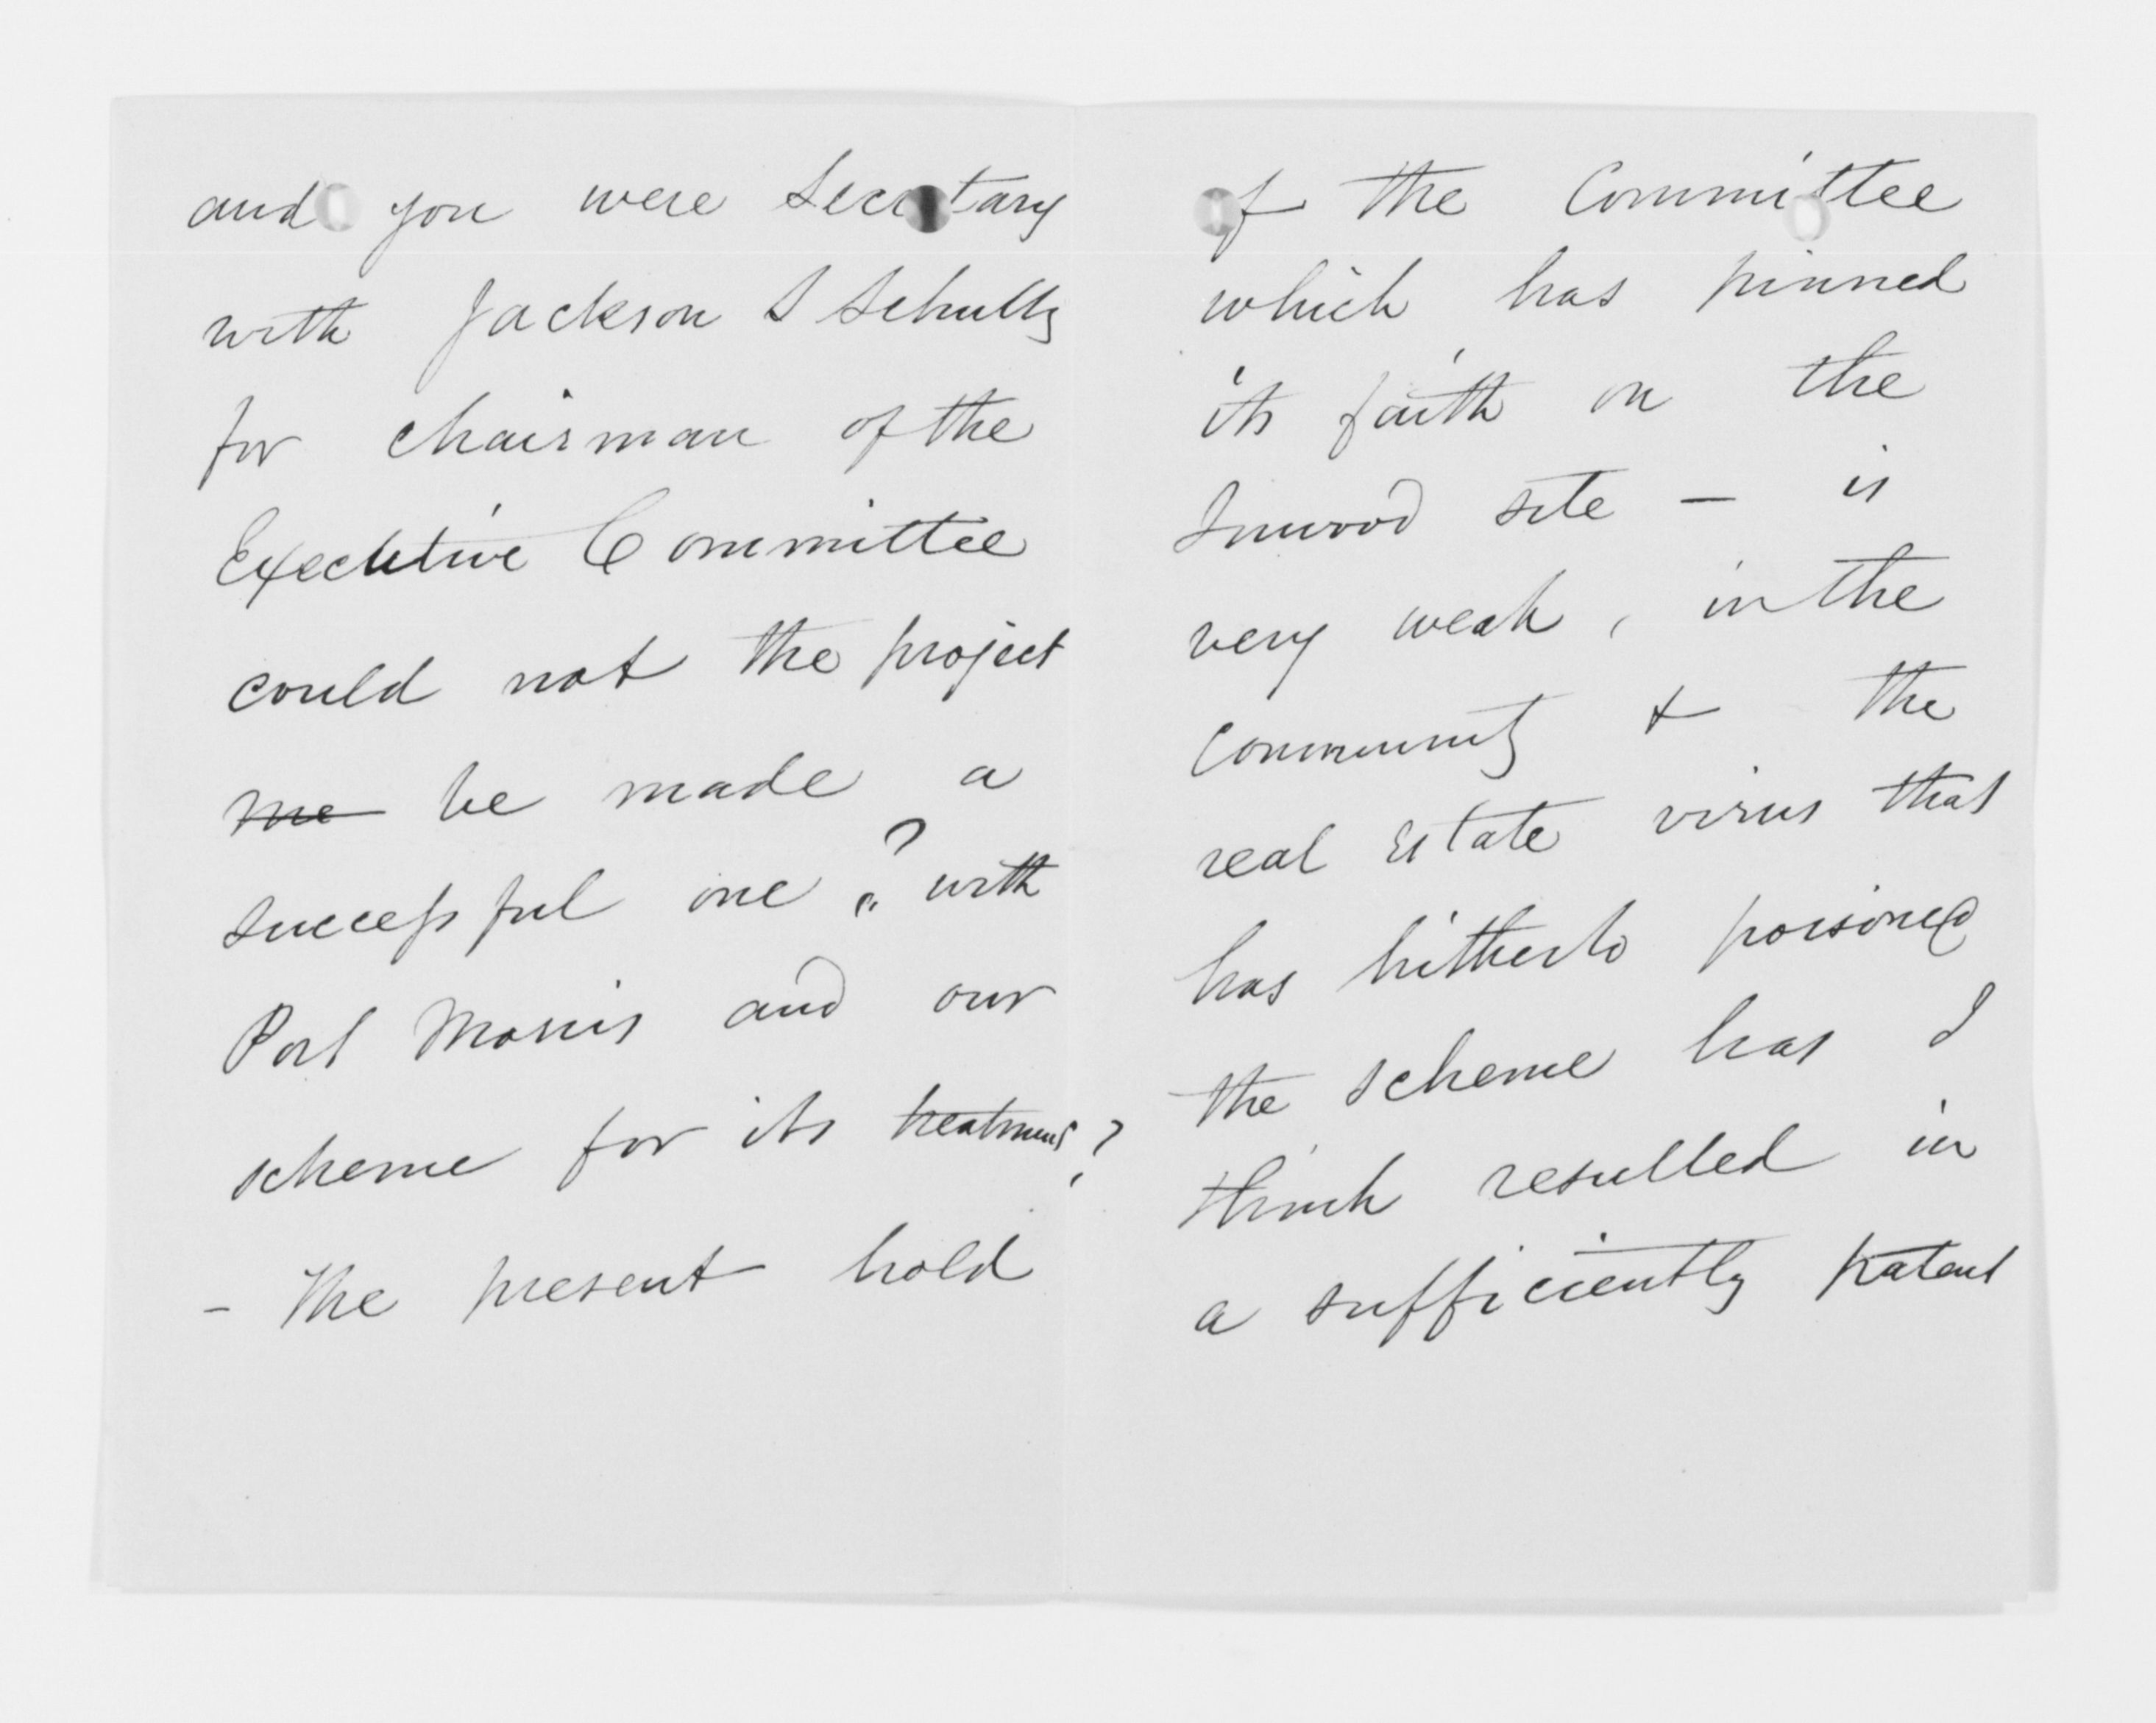 and you were Secretary
with Jackson S Schultz
for chairman of the
Executive Committee
could not the project
me be made a
successful one? with
Port Morris and our
scheme for its treatment?
- The present hold
of the Committee
which has pinned
its faith on the
Inwood site — is
very weak, in the
community & the
real Estate virus that
has hitherto poisoned
the scheme has I
think resulted in
a sufficiently patent